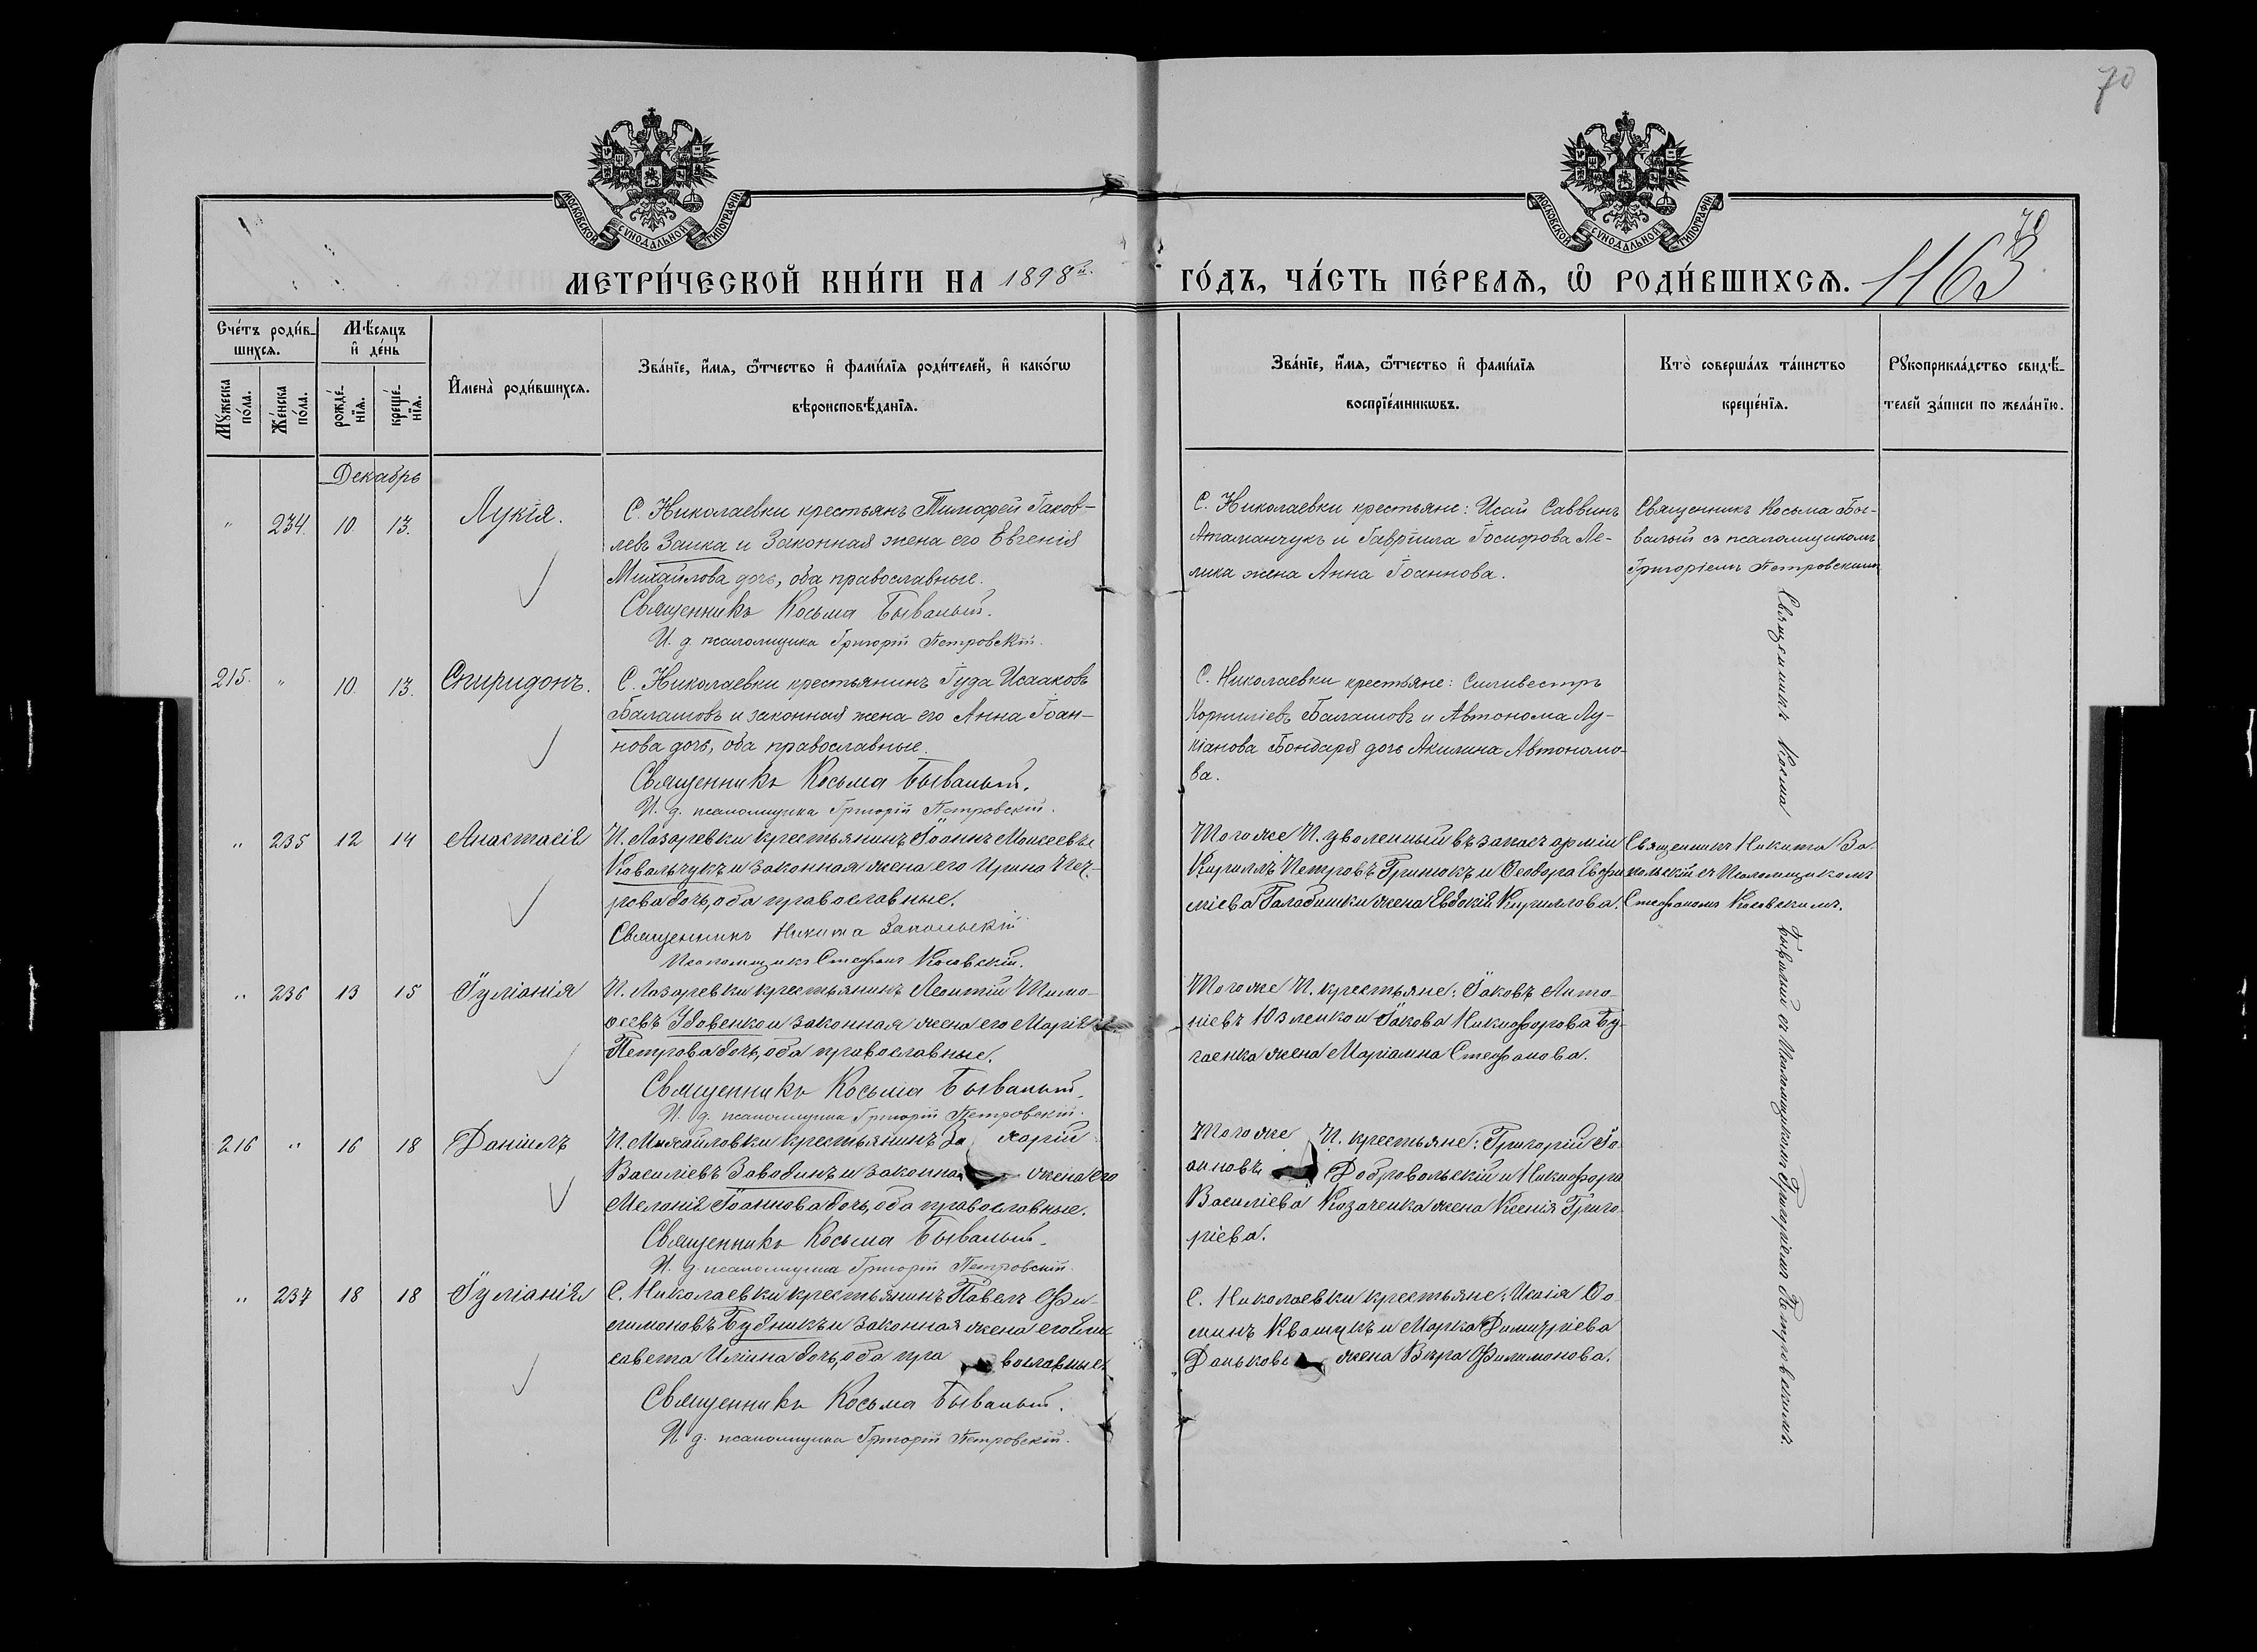 70
МОСКОВСКОЙ СѴНОДАЛЬНОЙ ТИПОГРАФІИ
МОСКОВСКОЙ СѴНОДАЛЬНОЙ ТИПОГРАФІИ
70
МЕТРИ́ЧЕСКОЙ КНИ́ГИ НА 1898й.
ГО́ДЪ, ЧА́СТЬ ПЕ́РВАѦ, Ѡ РОДИ́ВШИХСѦ. 1163
Сче́тъ роди́в-
шихсѧ.
Мꙋ́жеска по́ла.
Же́нска по́ла.
Мѣ́сѧцъ
и҆ де́нь
рожде́-
нїѧ.
креще́-
нїѧ.
И҆мена̀ роди́вшихсѧ.
Зва́нїе, и҆́мѧ, ѻ҆́тчество и҆ фами́лїѧ роди́телей, и҆ како́гѡ
вѣроисповѣ́данїѧ.
Зва́нїе, и҆́мѧ, ѻ҆́тчество и҆ фами́лїѧ
воспрїе́мникѡвъ.
Кто̀ соверша́лъ та́инство
креще́нїѧ.
Рꙋкоприкла́дство свидѣ́-
телей за́писи по жела́нїю.
Декабрь
" 234. 10. 13. Лукія.
С. Николаевки крестьянъ Тимофей Іаков-
левъ Заика и законная жена его Евгенія
Михайлова дочь, оба православные.
Священникъ Косьма Бывалый.
И. д. псаломщика Григорій Петровскій.
С. Николаевки крестьяне: Исай Саввинъ
Атаманчукъ и Гавріила Іосифова Ле-
лика жена Анна Іоаннова.
Священникъ Косьма Бы-
валый съ псаломщикомъ
Григоріемъ Петровскимъ
215. " 10. 13. Спиридонъ.
С. Николаевки крестьянинъ Іуда Исааковъ
Балашовъ и законная жена его Анна Іоан-
нова дочь, оба православные.
Священникъ Косьма Бывалый.
И. д. псаломщика Григорій Петровскій.
С. Николаевки крестьяне: Сильвестръ
Корниліевъ Балашовъ и Автонома Лу-
кіанова Бондаря дочь Акилина Автономо-
ва.
" 235 12 14 Анастасія
П. Лазаревки крестьянинъ Іоаннъ Моисеевъ
Ковальчукъ и законная жена его Ирина Пет-
рова дочь, оба православные.
Священникъ Никита Запольскій
Псаломщикъ Стефанъ Косовскій.
Того же П. уволенный въ запасъ арміи
Кириллъ Петровъ Гринюкъ и Ѳеодора Евфи
міева Галабишки жена Евдокія Кириллова.
Священникъ Никита За-
польскій съ Псаломщикомъ
Стефаномъ Косовскимъ.
" 236 13 15 Іуліанія
П. Лазаревки крестьянинъ Леонтій Тимо-
феевъ Удовенко и законная жена его Марія
Петрова дочь, оба православные.
Священникъ Косьма Бывалый.
И. д. псаломщика Григорій Петровскій.
Того же П. крестьяне: Іаковъ Анто-
ніевъ Юзленко и Іакова Никифорова Бу-
гаенка жена Маріамна Стефанова.
216 " 16 18 Даніилъ
П. Михайловки крестьянинъ За харій
Василіевъ Заводинъ и законная жена его
Меланія Іоаннова дочь, оба православные.
Священникъ Косьма Бывалый.
И. д. псаломщика Григорій Петровскій.
Того же П. крестьяне: Григорій Іо-
анновъ Добровольскій и Никифора
Василіева Козаченка жена Ксенія Григо-
ріева.
" 237 18 18 Іуліанія
С. Николаевки крестьянинъ Павелъ Фи-
лимоновъ Будникъ и законная жена его Ели
савета Иліина дочь, оба пра вославные.
Священникъ Косьма Бывалый.
И. д. псаломщика Григорій Петровскій.
С. Николаевки крестьяне: Исаія Ѳо-
минъ Квашукъ и Марка Димитріева
Данькове жена Вѣра Филимонова.
Священникъ Косма Бывалый съ Псаломщикомъ Григоріемъ Петровскимъ.